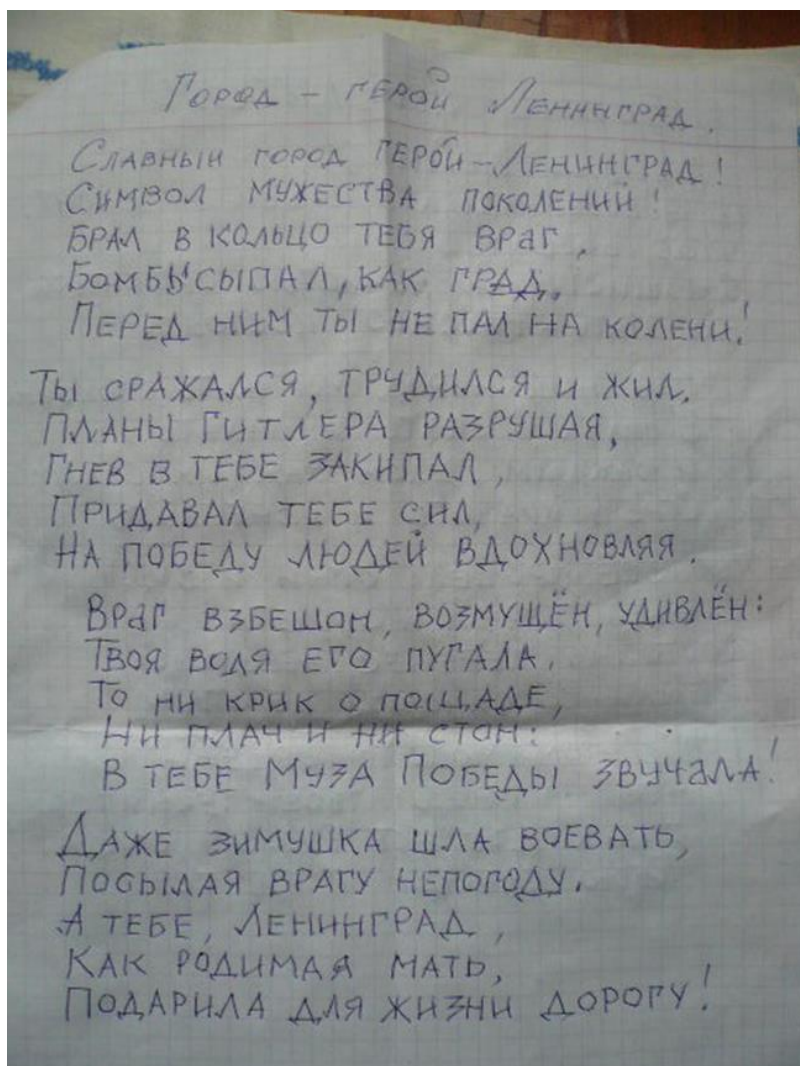 Город - герой Ленинград.
Славный город герой - Ленинград!
Символ мужества поколений!
Брал в кольцо тебя враг,
Бомбы сыпал, как град,
Перед ним ты не пал на колени!
Ты сражался, трудился и жил,
Планы Гитлера разрушая,
Гнев в тебе закипал,
Придавал тебе сил,
На победу людей вдохновляя.
Враг взбешон, возмущён, удивлён:
Твоя воля его пугала.
То ни крик о пощаде,
Ни плач и ни стон:
В тебе Муза Победы звучала!
Даже зимушка шла воевать,
Посылая врагу непогоду.
А тебе, Ленинград,
Как родимая мать,
Подарила для жизни дорогу!